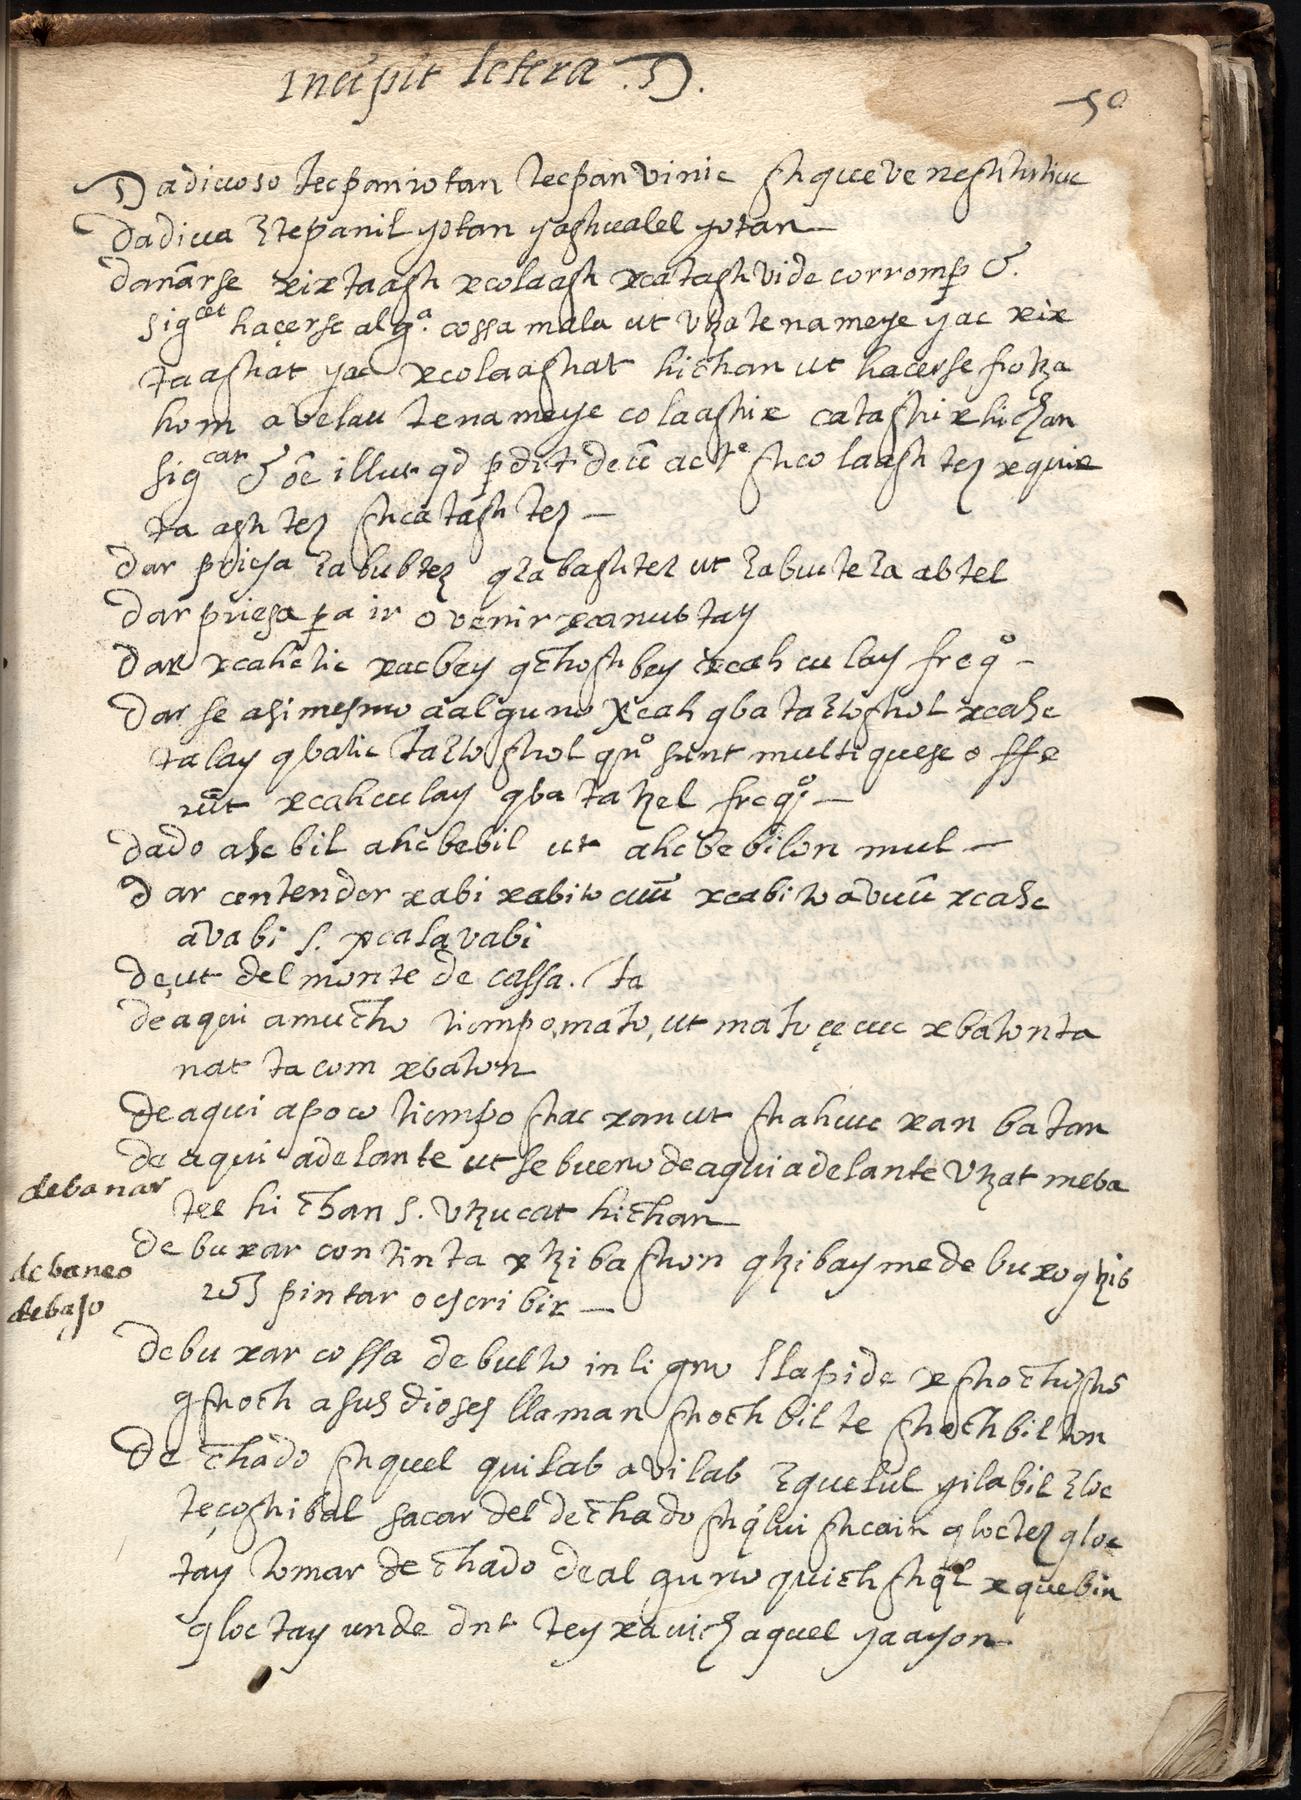 Incipit letera .D.
50
Dadivoso tecpaniotan tecpan vinic
dadiva ztepanil yotan yashualel yotan
danarse xixtaash xcolaash xcatash vide corromp &.
sig^cat haçerse alg.ª cossa mala ut utzatenameye yac xix
taashat yac xcolaashat hichan ut haçerse
hom avelau tenameye colaashix catashix hichan
sig^car & illut qd
ta ash tez shcatash tez
dar priesa zabubtez qzabashtez ut zabutezaabtel
dar priesa pa ir o venir xcanubtay
dar xcahctic xacbey qchoshbey xcahculay freq°
dar se asimesmo aalguno xcah qba taztoshol xcahc
talay qbatic taztoshol qn° sunt multi quese offe
rūt xcahculay qba tatzel freq°.
dado ahcbil ahcbebil ut ahcbebilon mul
dar contender xabi xabito xcabito xcahc
avabi s. xcalavabi
de, ut del monte de cassa. ta
deaqui amucho tiempo, mato, ut mato xbatonta
nat tacom xbaton
deaqui apoco tiempo shac xan ut shahuc xan batan
de aqui adelante ut se bueno deaqui adelante utzat meba
tel hichan s. utzucat hichan
debanar
debuxar con tinta xtzibashon qtzibay me debuxo qtzib
debaneo
pintar o escribir
debajo
debuxar cossa debulto in ligno l lapide
qshoch asus dioses llaman shochbilte shochbilton
Dechado shquel quilab avilab zquelul yilabil zloc
teçoshibal sacar del dechado shq̄lui shcain qloctez qloc
tay tomar dechado dealguno quich shq̄l xquebin
qloctay unde dnt tey xavich aquel yaayon